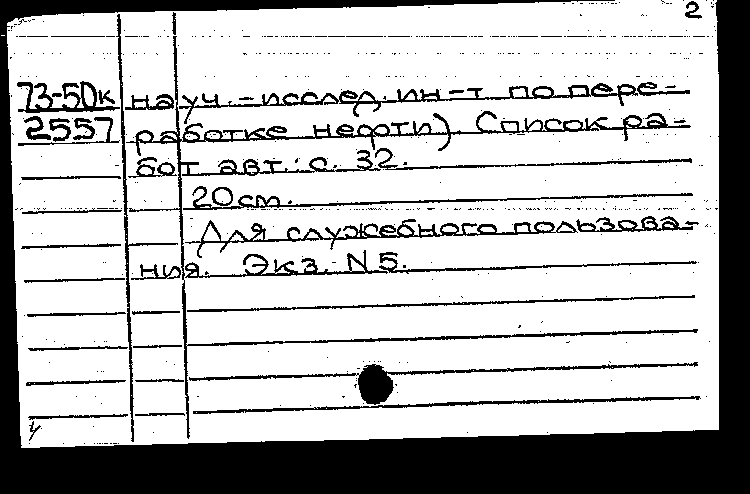 2
73-50к науч.-исслед. ин-т по пере-
2557 работке нефти). Список ра-
бот авт.: с. 32.
20 cm.
Для служебного пользова-
ния. Экз. N 5.